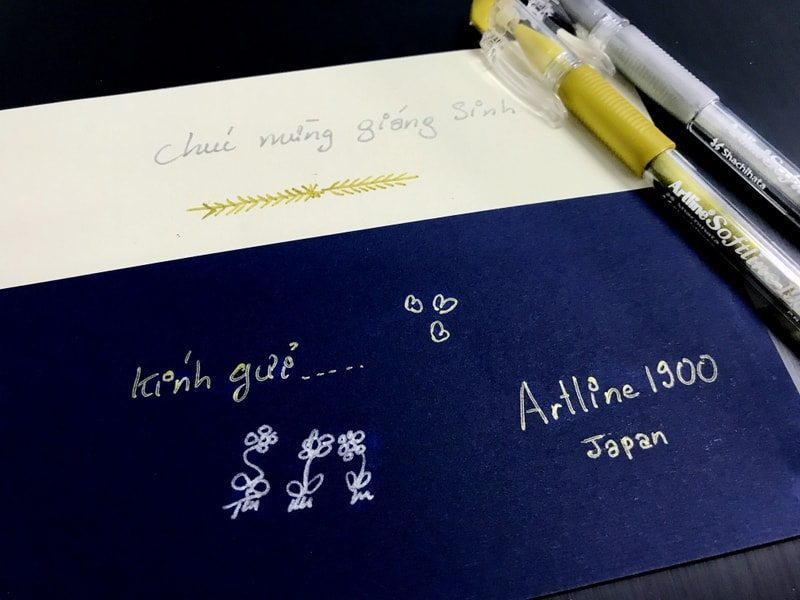 chúc mừng giáng sinh
kính gửi.....
Artline 1900
Japan
Shachihata
Artline